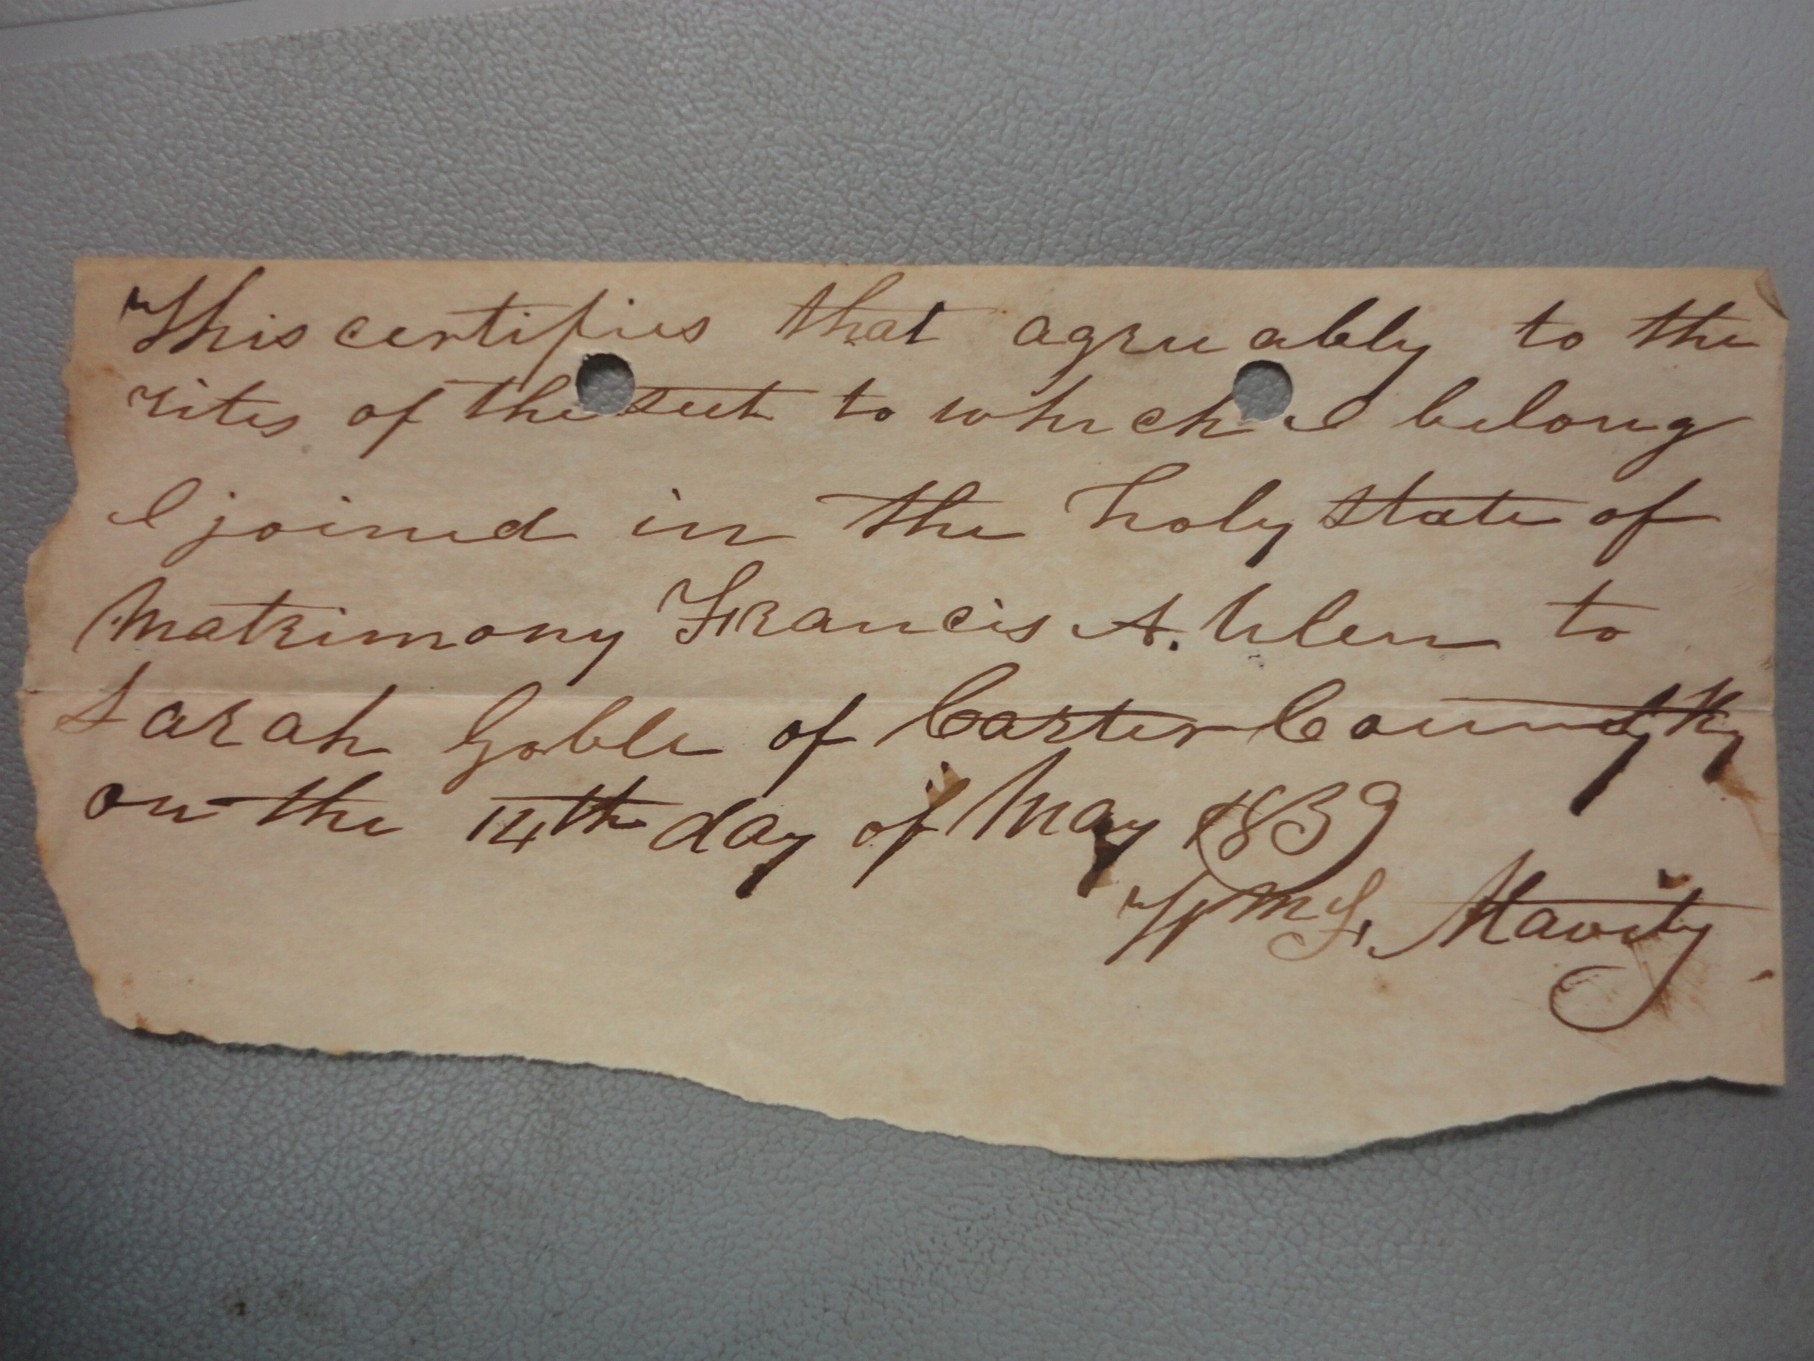 This certifies that agreeably to the
rites of the sect to which I belong
I joined in the holy state of
Matrimony Francis A. Ulen to
Sarah Goble of Carter County Ky
on the 14th day of May 1839
Wm F. Mavity